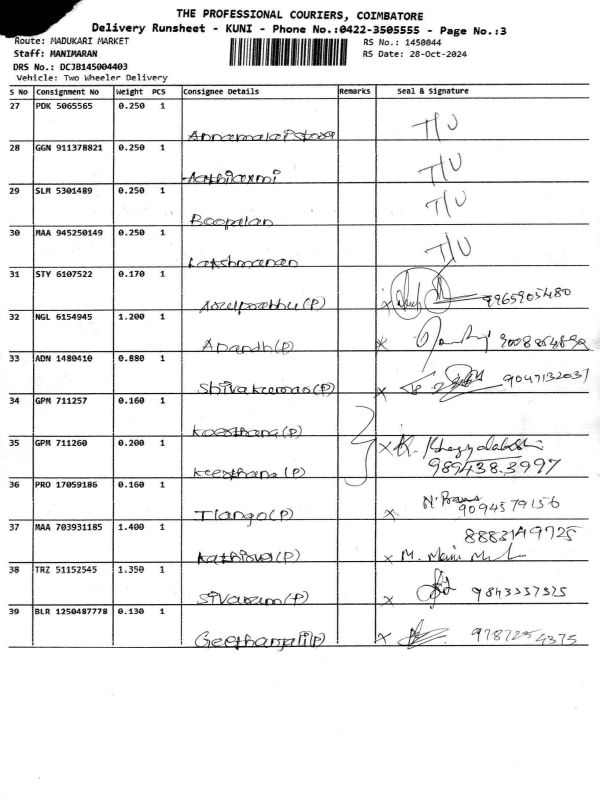 THE PROFESSIONAL COURIERS, COIMBATORE
Delivery Runsheet - KUNI - Phone No.:0422-3505555 - Page No.:3
Route: MADUKARI MARKET RS No.: 1450044
Staff: MANIMARAN RS Date: 28-Oct-2024
DRS No.: DCJB145004403
Vehicle: Two Wheeler Delivery
S No Consignment No Weight PCS Consignee Details Remarks Seal & Signature
27 PDK 5065565 0.250 1 T/U
Annamalai stores
28 GGN 911378821 0.250 1 T/U
Aathilaxmi
29 SLM 5301489 0.250 1 T/U
Boopalan
30 MAA 945250149 0.250 1 T/U
Lakshmanan
31 STY 6107522 0.170 1
Arulprabhu (P) x 9965905480
32 NGL 6154945 1.200 1
Anandh (P) x
33 ADN 1480410 0.880 1
Shivakumar (P) x 9047132037
34 GPM 711257 0.160 1
Keerthana (P)
35 GPM 711260 0.200 1 x K.
Keerthana (P) 989438.3997
36 PRO 17059186 0.160 1
Ilango (P) x 9094579156
37 MAA 703931185 1.400 1 8883149725
Kathirvel (P) x M. Mani
38 TRZ 51152545 1.350 1
Sivaram (P) x 9843357325
39 BLR 1250487778 0.130 1
Geethanjali (P) x 9787254375